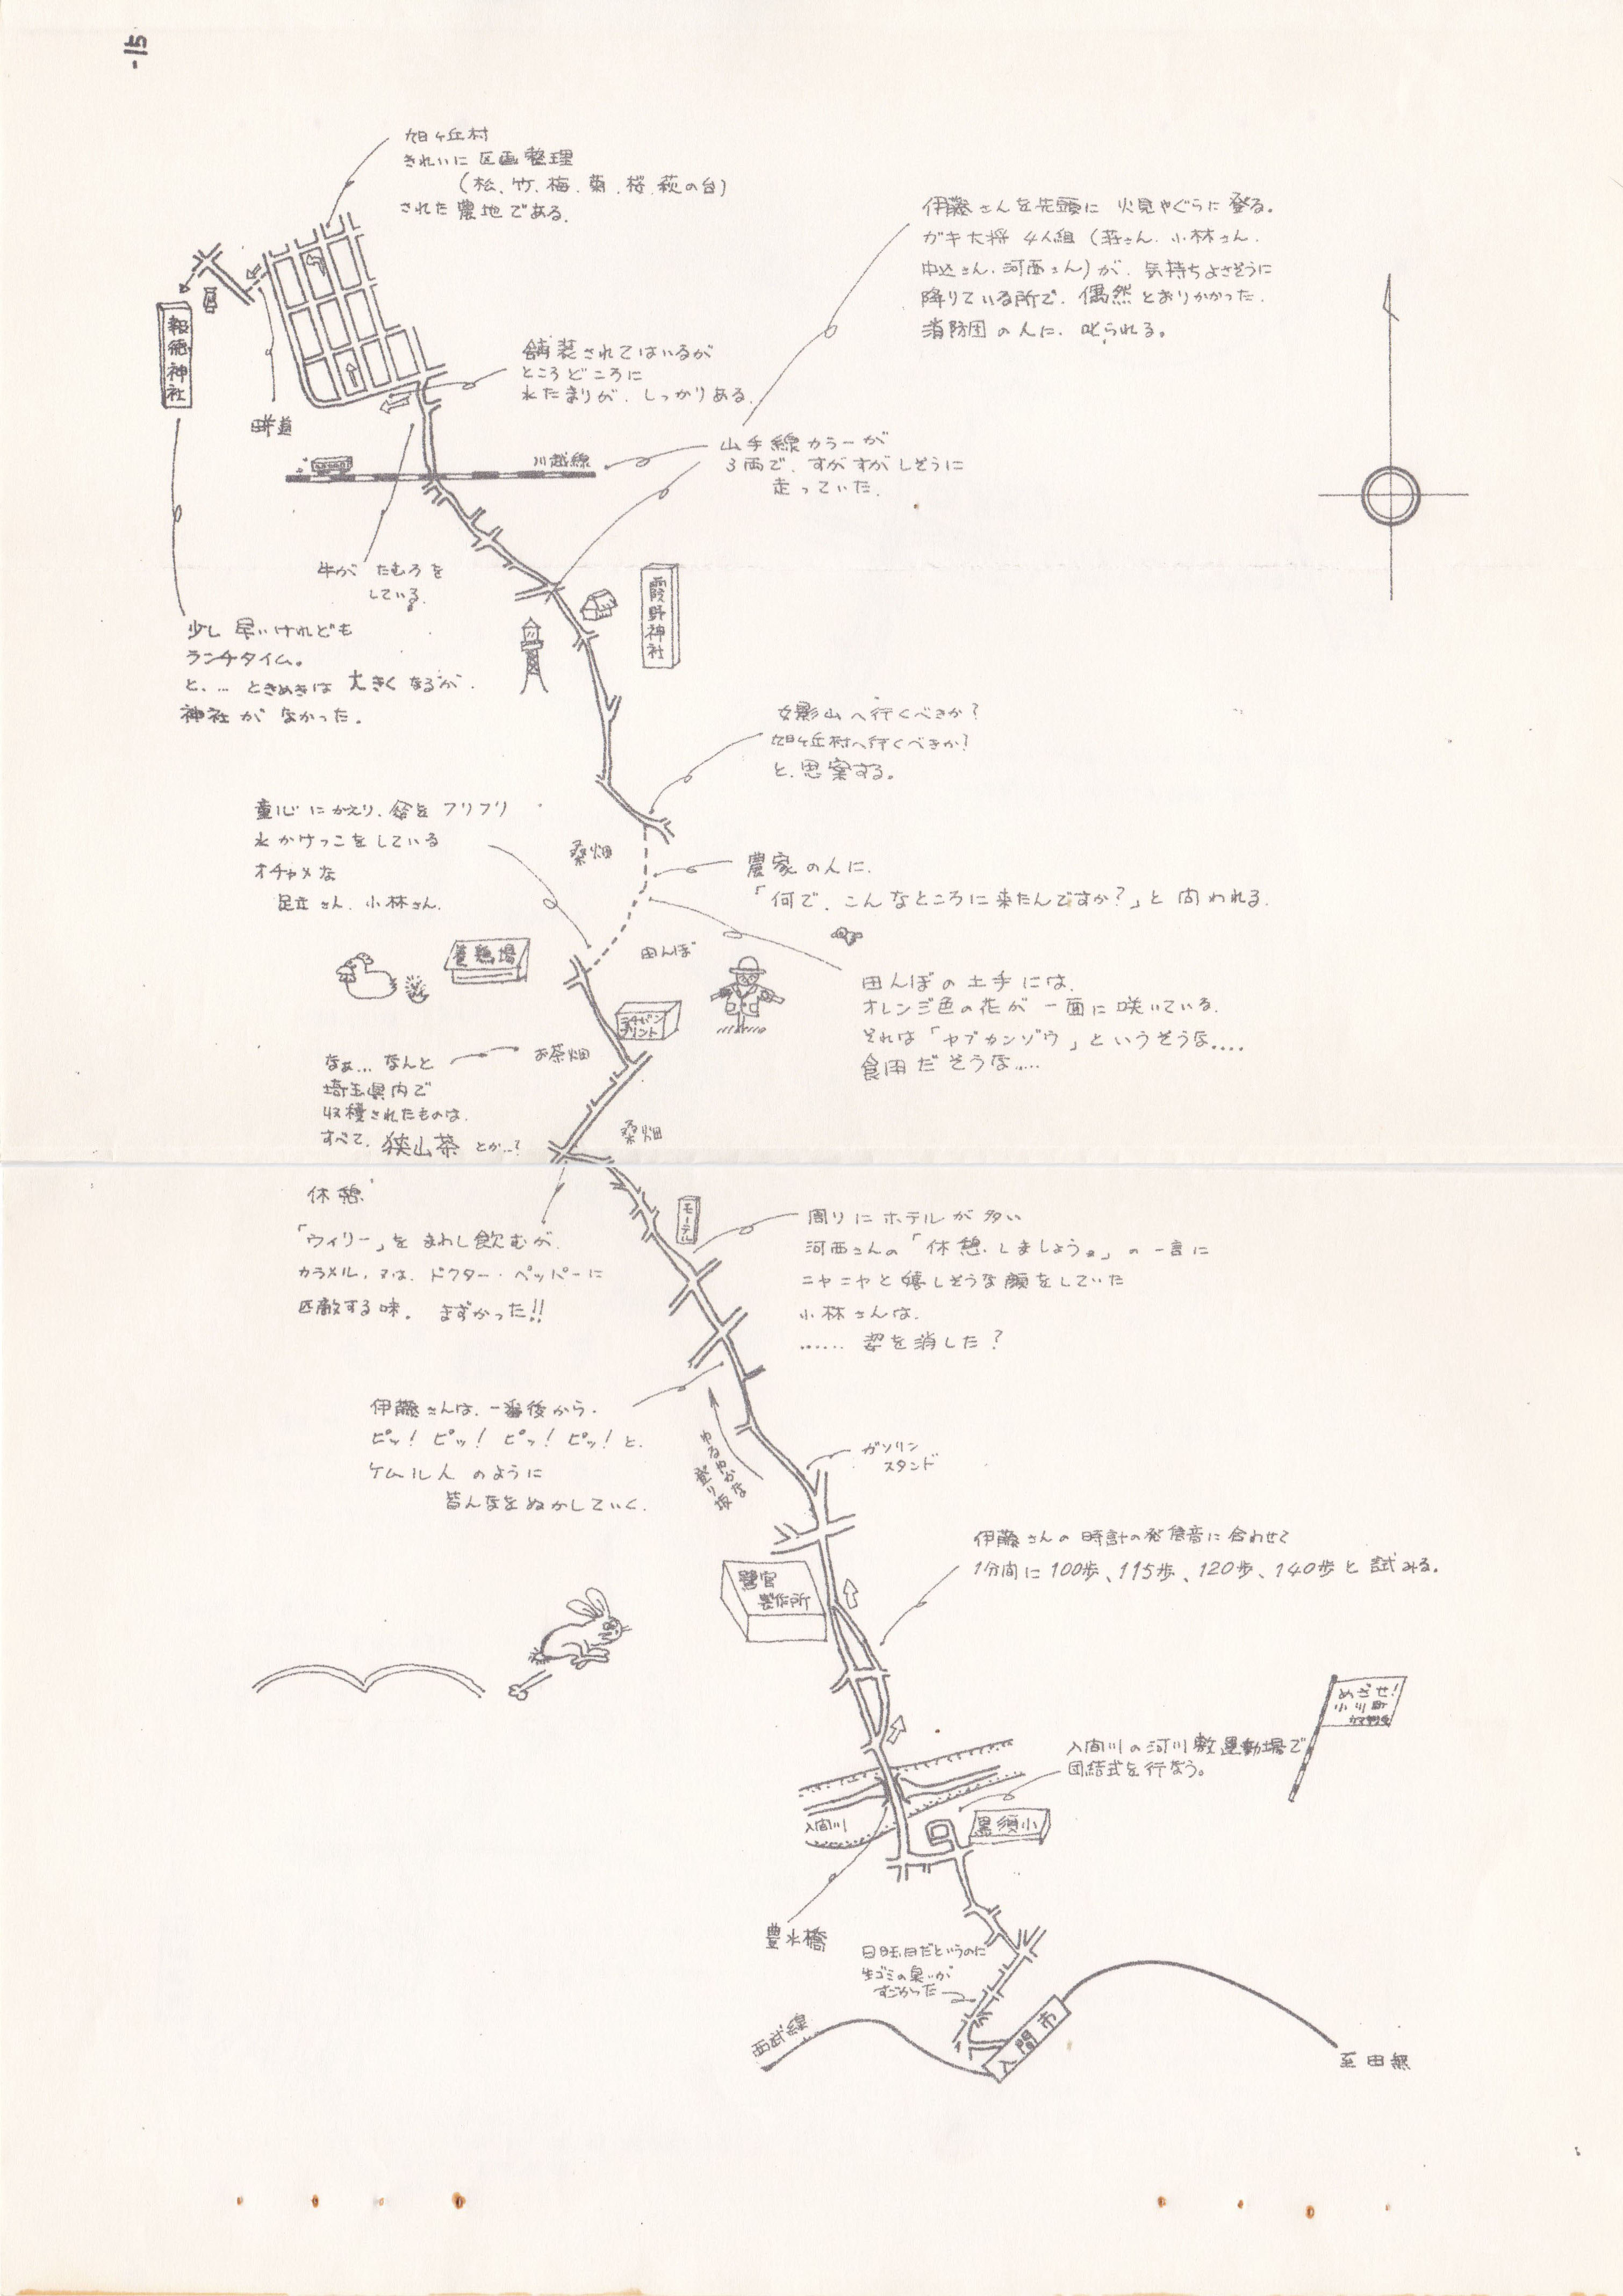 -15
旭ヶ丘村
きれいに 区画整理
(松、竹、梅、菊、桜、萩の台)
された農地である。
伊藤さんを先頭に 火見やぐらに登る。
ガキ大将 4人組 (荘さん、小林さん、
中込さん、河西さん)が、気持ちよさそうに
降りている所で、偶然とおりかかった、
消防団の人に、叱られる。
報徳神社
畔道
舗装されてはいるが
ところどころに
水たまりが、しっかりある。
川越線
山手線カラーが
3両で、すがすがしそうに
走っていた。
牛が たむろを
している。
霞野神社
少し早いけれども
ランチタイム。
と、… ときめきは 大きくなるが、
神社が なかった。
女影山へ行くべきか?
旭ヶ丘村へ行くべきか?
と、思案する。
童心にかえり、傘をフリフリ
水かけっこをしている
オチャメな
足立さん、小林さん。
桑畑
農家の人に、
「何で、こんなところに来たんですか?」と 問われる。
養鶏場
田んぼ
田んぼの土手には、
オレンジ色の花が 一面に咲いている。
それは「ヤブカンゾウ」というそうな....
食用だそうな....
プリント
お茶畑
なぁ… なんと
埼玉県内で
収穫されたものは、
すべて、狭山茶 とか…?
桑畑
休憩
「ウィリー」を まわし飲むが、
カラメル、又は、ドクター・ペッパーに
匹敵する味。 まずかった!!
モーテル
周りにホテルが多い
河西さんの「休憩しましょう。」の一言に
ニヤニヤと嬉しそうな顔をしていた
小林さんは、
...... 姿を消した?
伊藤さんは、一番後から、
ピッ! ピッ! ピッ! ピッ! と、
ケムール人 のように
皆んなをぬかしていく。
ゆるやかな
登り坂
ガソリン
スタンド
伊藤さんの 時計の発信音に合わせて
1分間に100歩、115歩、120歩、140歩と試みる。
鷺宮
製作所
めざせ!
小川町
入間川の河川敷運動場で
団結式を行なう。
入間川
黒須小
豊水橋
日曜日だというのに
生ゴミの臭いが
すごかった
西武線
入間市
至田無